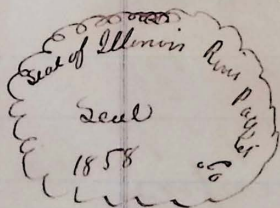 Seal of Illinois River Packet Co
Seal
1858